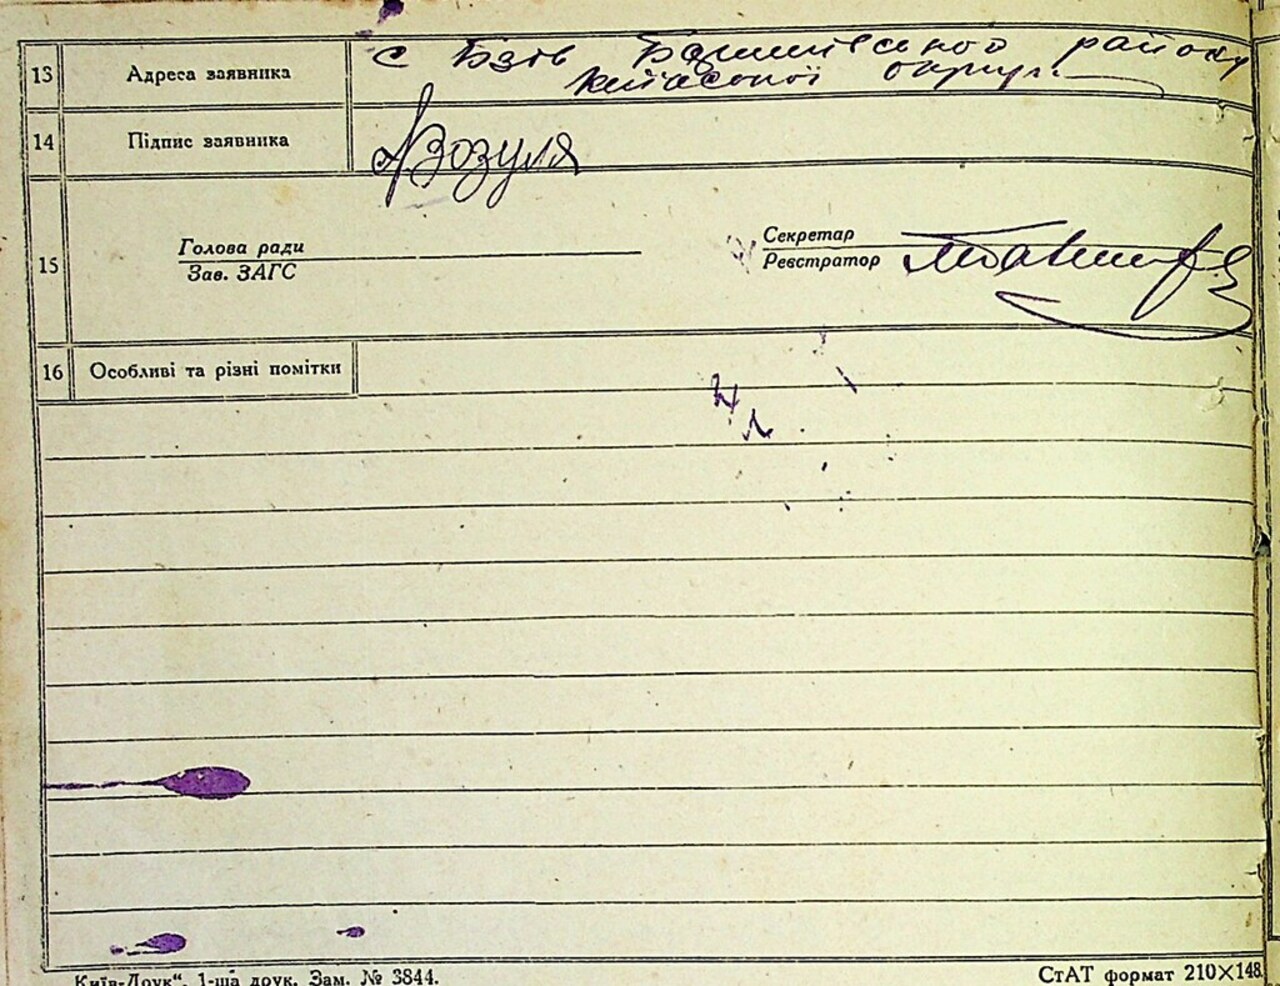 13 Адреса заявника с Бзів Баришівського району
Київської округи
14 Підпис заявника Возуля
15 Голова ради Секретар
Зав. ЗАГС Реєстратор
16 Особливі та різні помітки
Київ-Друк“, 1-ша друк. Зам. № 3844. СтАТ формат 210×148